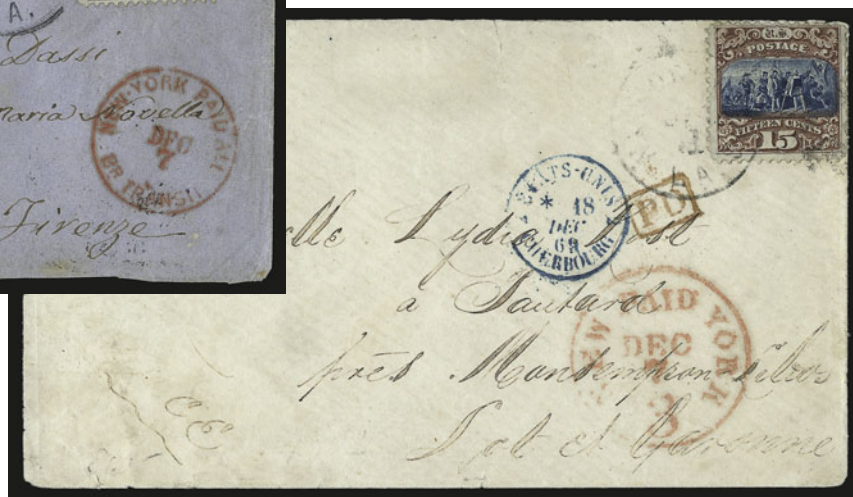 A.
Dassi
Maria Novella
Firenze
NEW-YORK PAID ALL
DEC
7
BR TRANSIT
U.S.
POSTAGE
FIFTEEN CENTS
15
ETATS-UNIS
* 18
DEC
69
CHERBOURG
PD
lle Lydie Post
a Sautard
près Monsempron Libos
Lot et Garonne
NEW PAID YORK
DEC
3